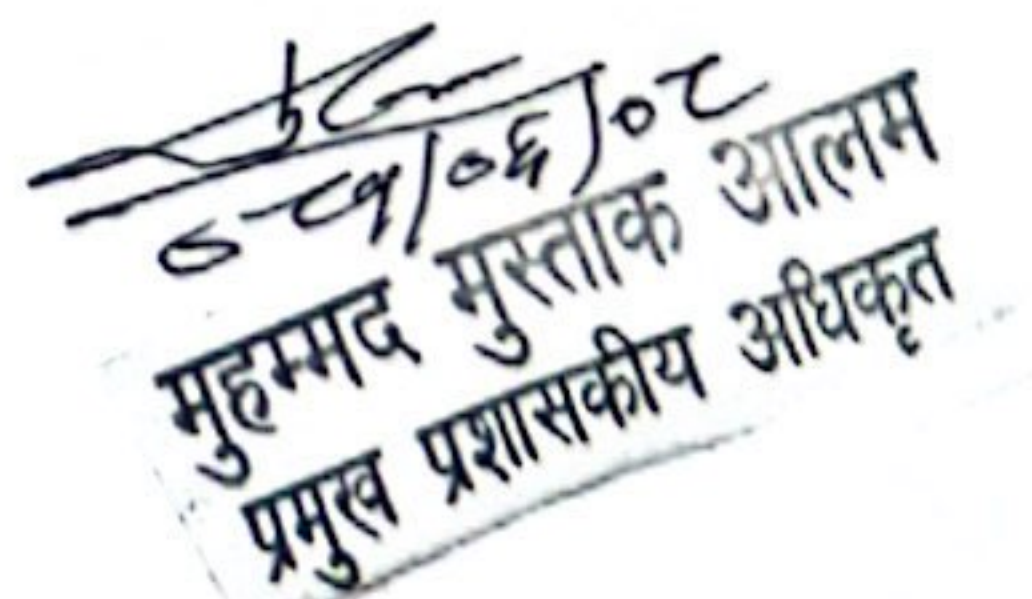 ०८१/०६/०८
मुहम्मद मुस्ताक आलम
प्रमुख प्रशासकीय अधिकृत